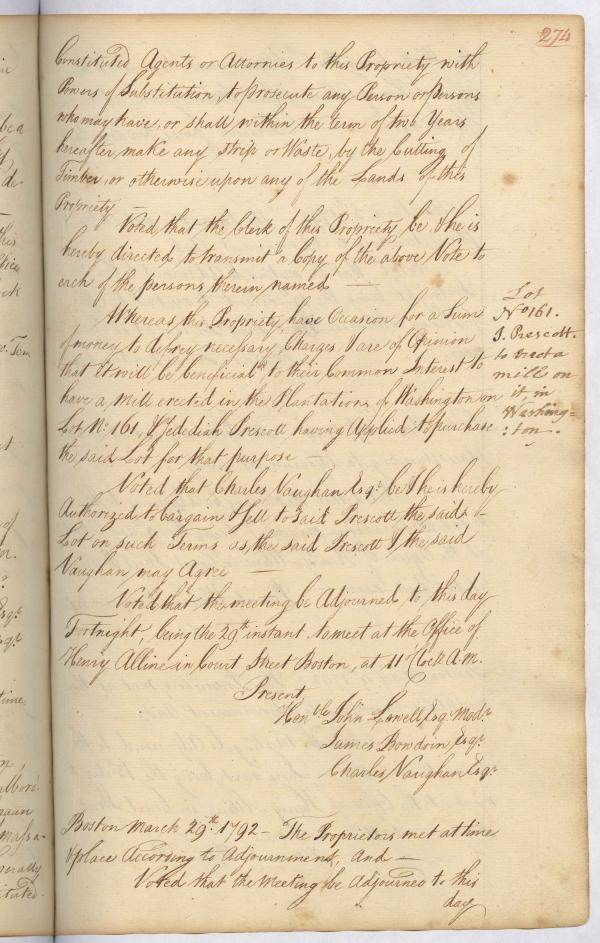 274
Constituted Agents or Attornies to this Propriety with
Powers of Substitution, to prosecute any Person or persons
who may have, or shall within the term of two Years
hereafter, make any Strip or Waste, by the Cutting of
Timber, or otherwise upon any of the Lands of this
Propriety —
Voted that the Clerk of this Propriety be, & he is
hereby directed to transmit a Copy of the above Vote to
each of the persons therein named —
Whereas this Propriety, have Occasion for a Sum
of money to defrey necessary Charges, & are of Opinion
that it will be beneficial to their Common Interest to
have a Mill erected in the Plantation of Washington on
Lot No. 161, & Jedediah Prescott having Applied to purchase
the said Lot for that purpose —
Lot
No 161.
J. Prescott.
to erect a
mill on
it, in
Washing=
:ton.
Voted that Charles Vaughan Esqr. be & he is hereby
Authorized to bargain & sell to said Prescott the said
Lot on such Terms as the said Prescott & the said
Vaughan may Agree —
Voted that the meeting be Adjourned to this day
Fortnight, being the 29th instant, to meet at the Office of
Henry Alline in Court Street Boston, at 11 oClock A.M.
Present,
Honble John Lowell Esq. Modr.
James Bowdoin Esqr.
Charles Vaughan Esqr.
Boston March 29th. 1792 — The Proprietors met at time
& place According to Adjournment, And —
Voted that the Meeting be Adjourned to this
day